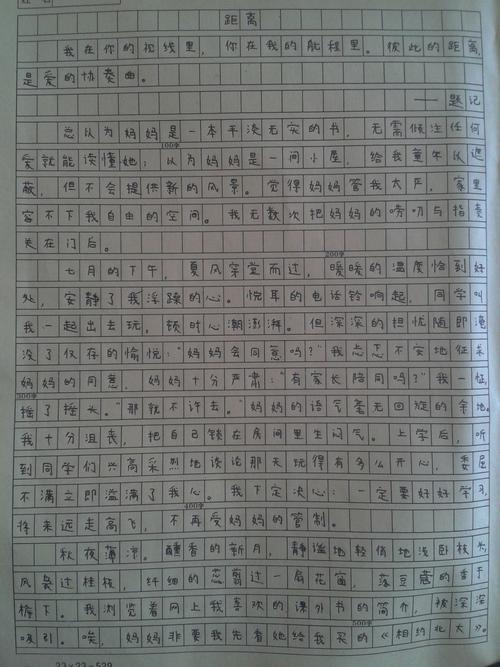 距离
我在你的视线里，你在我的航程里。彼此的距离，
是爱的协奏曲。
——题记
总以为妈妈是一本平淡无实的书，无需倾注任何
100字
爱就能读懂她；以为妈妈是一间小屋，给我童年以遮
蔽，但不会提供新的风景。觉得妈妈管我太严，家里
容不下我自由的空间。我无数次把妈妈的唠叨与指责
关在门后。
200字
七月的下午，夏风穿堂而过，暖暖的温度恰到好
处，安静了我浮躁的心。悦耳的电话铃响起，同学叫
我一起出去玩，顿时心潮澎湃。但深深的担忧随即淹
没了仅存的愉悦：“妈妈会同意吗？”我忐忑不安地征求
妈妈的同意，妈妈十分严肃：“有家长陪同吗？”我一怔，
300字
摇了摇头。“那就不许去。”妈妈的语气毫无回旋的余地。
我十分沮丧，把自己锁在房间里生闷气。上学后，听
到同学们兴高采烈地谈论那天玩得有多么开心，委屈
不满立即溢满了我心。我下定决心：一定要好好学习，
400字
将来远走高飞，不再受妈妈的管制。
秋夜薄凉。醺香的新月，静谧地轻俏地浅卧枝头，
风袅过桂枝，纤细的蕊剪过一扇花窗，落豆蔻的香于
檐下。我浏览着网上我喜欢的课外书的简介，被深深
500字
吸引。唉，妈妈非要我先看她给我买的《相约北大》
23×23=529